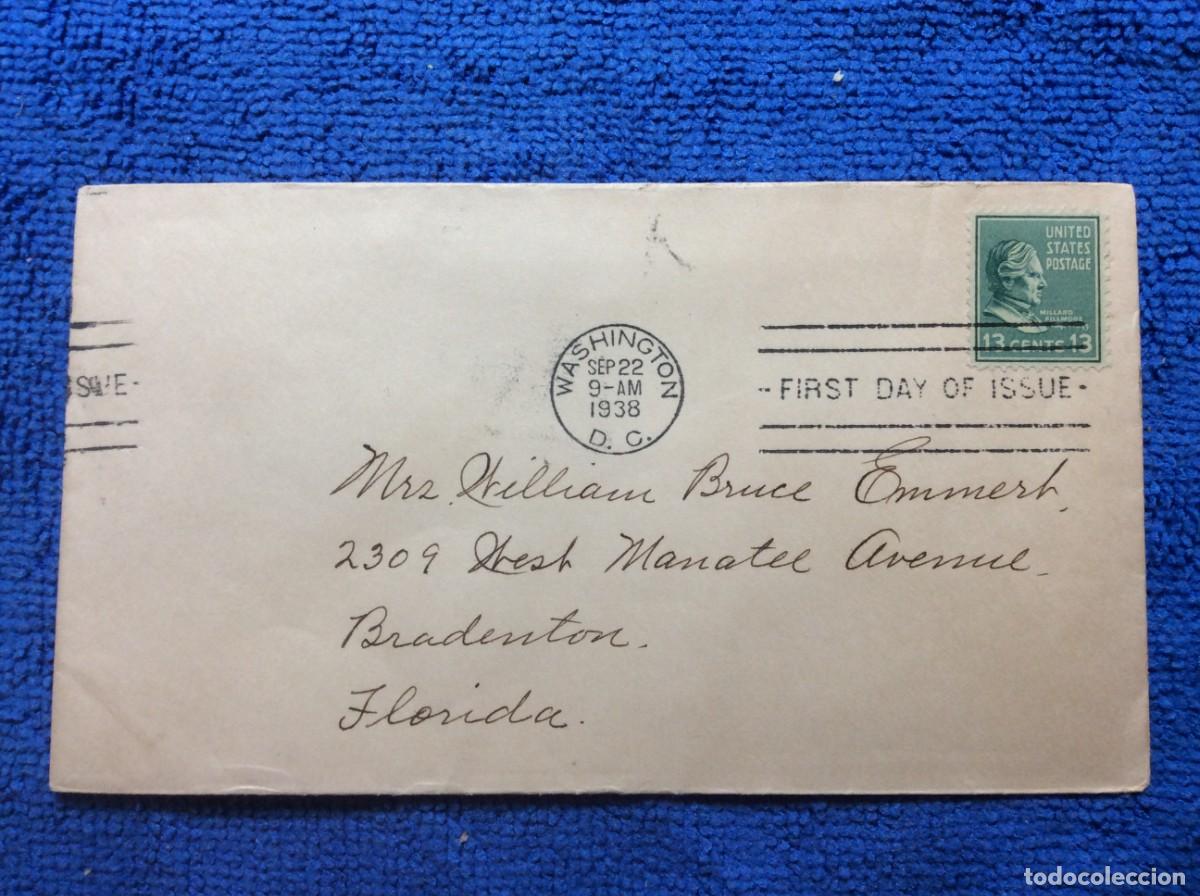 UNITED
STATES
POSTAGE
MILLARD
FILLMORE
13 CENTS 13
WASHINGTON
SEP 22
9-AM
1938
D. C.
SUE -
- FIRST DAY OF ISSUE -
Mrs. William Bruce Emmert,
2309 West Manatee Avenue.
Bradenton.
Florida.
todocoleccion